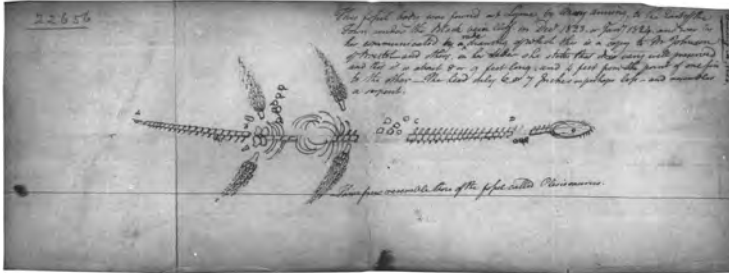 22656
This fossil body was found at Lyme by Mary Anning, to the East of the
Town under the Black Ven Cliff in Decr 1823 or Jany 1824 and was by
her communicated by a rude drawing of which this is a copy to Mr Johnson
of Bristol and others, in her letter she states that it is very well preserved
and that it is about 8 or 9 feet long, and 4 feet from the point of one fin
to the other – The head only 6 or 7 Inches perhaps less – and resembles
a serpent.
These fins resemble those of the fossil called Plesiosaurus.